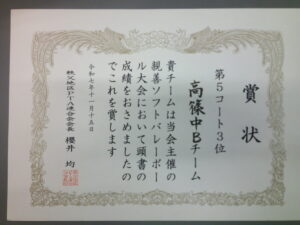 賞状
第5コート3位
高篠中Bチーム
貴チームは当会主催の
親善ソフトバレーボー
ル大会において頭書の
成績をおさめましたの
でこれを賞します
令和七年十一月十五日
秩父地区PTA連合会会長 櫻井 均